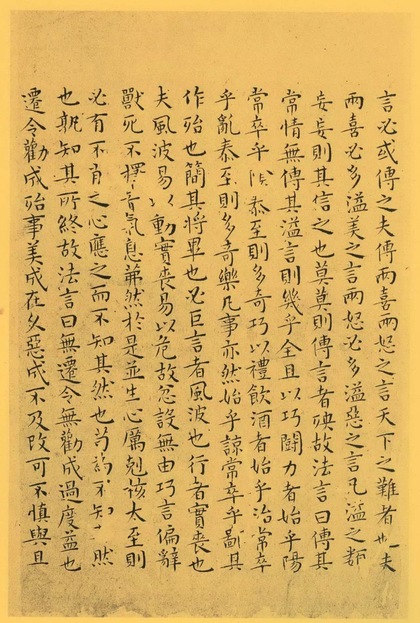 言必或傳之夫傳兩喜兩怒之言天下之難者也夫
兩喜必多溢美之言兩怒必多溢惡之言凡溢之類
妄妄則其信之也莫莫則傳言者殃故法言曰傳其
常情無傳其溢言則幾乎全且以巧鬭力者始乎陽
常卒乎陰泰至則多奇巧以禮飲酒者始乎治常卒
乎亂泰至則多奇樂凡事亦然始乎諒常卒乎鄙其
作始也簡其將畢也必巨言者風波也行者實喪也
夫風波易以動實喪易以危故忿設無由巧言偏辭
獸死不擇音氣息茀然於是並生心厲剋核太至則
必有不肖之心應之而不知其然也苟為不知然
也孰知其所終故法言曰無遷令無勸成過度益也
遷令勸成殆事美成在久惡成不及改可不慎與且